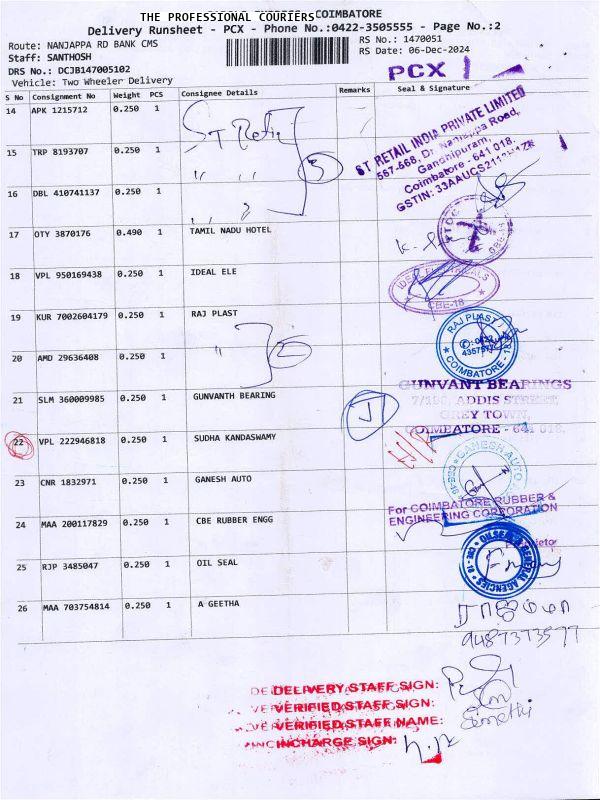 THE PROFESSIONAL COURIERS COIMBATORE
Delivery Runsheet - PCX - Phone No.:0422-3505555 - Page No.:2
Route: NANJAPPA RD BANK CMS
RS No.: 1470051
Staff: SANTHOSH
RS Date: 06-Dec-2024
DRS No.: DCJB147005102
Vehicle: Two Wheeler Delivery
PCX 1
S No Consignment No Weight PCS Consignee Details Remarks Seal & Signature
14 APK 1215712 0.250 1 ST Retail
15 TRP 8193707 0.250 1 " "
3
16 DBL 410741137 0.250 1 " "
ST RETAIL INDIA PRIVATE LIMITED
567-568, Dr. Nanjappa Road,
Gandhipuram,
Coimbatore - 641 018.
17 OTY 3870176 0.490 1 TAMIL NADU HOTEL
18 VPL 950169438 0.250 1 IDEAL ELE
IDEAL ELECTRICALS
CBE-18
19 KUR 7002604179 0.250 1 RAJ PLAST
RAJ PLAST
COIMBATORE - 18
20 AMD 29636408 0.250 1 "
2
21 SLM 360009985 0.250 1 GUNVANTH BEARING
GUNVANT BEARINGS
7/190, ADDIS STREET,
GREY TOWN,
COIMBATORE - 641 018.
22 VPL 222946818 0.250 1 SUDHA KANDASWAMY
23 CNR 1832971 0.250 1 GANESH AUTO
GANESH AUTO
24 MAA 200117829 0.250 1 CBE RUBBER ENGG
For COIMBATORE RUBBER &
ENGINEERING CORPORATION
25 RJP 3485047 0.250 1 OIL SEAL
OILSEAL & GENERAL AGENCIES
CBE - 18
26 MAA 703754814 0.250 1 A GEETHA
9487373577
DELIVERY STAFF SIGN:
VERIFIED STAFF SIGN:
VERIFIED STAFF NAME:
INCHARGE SIGN: